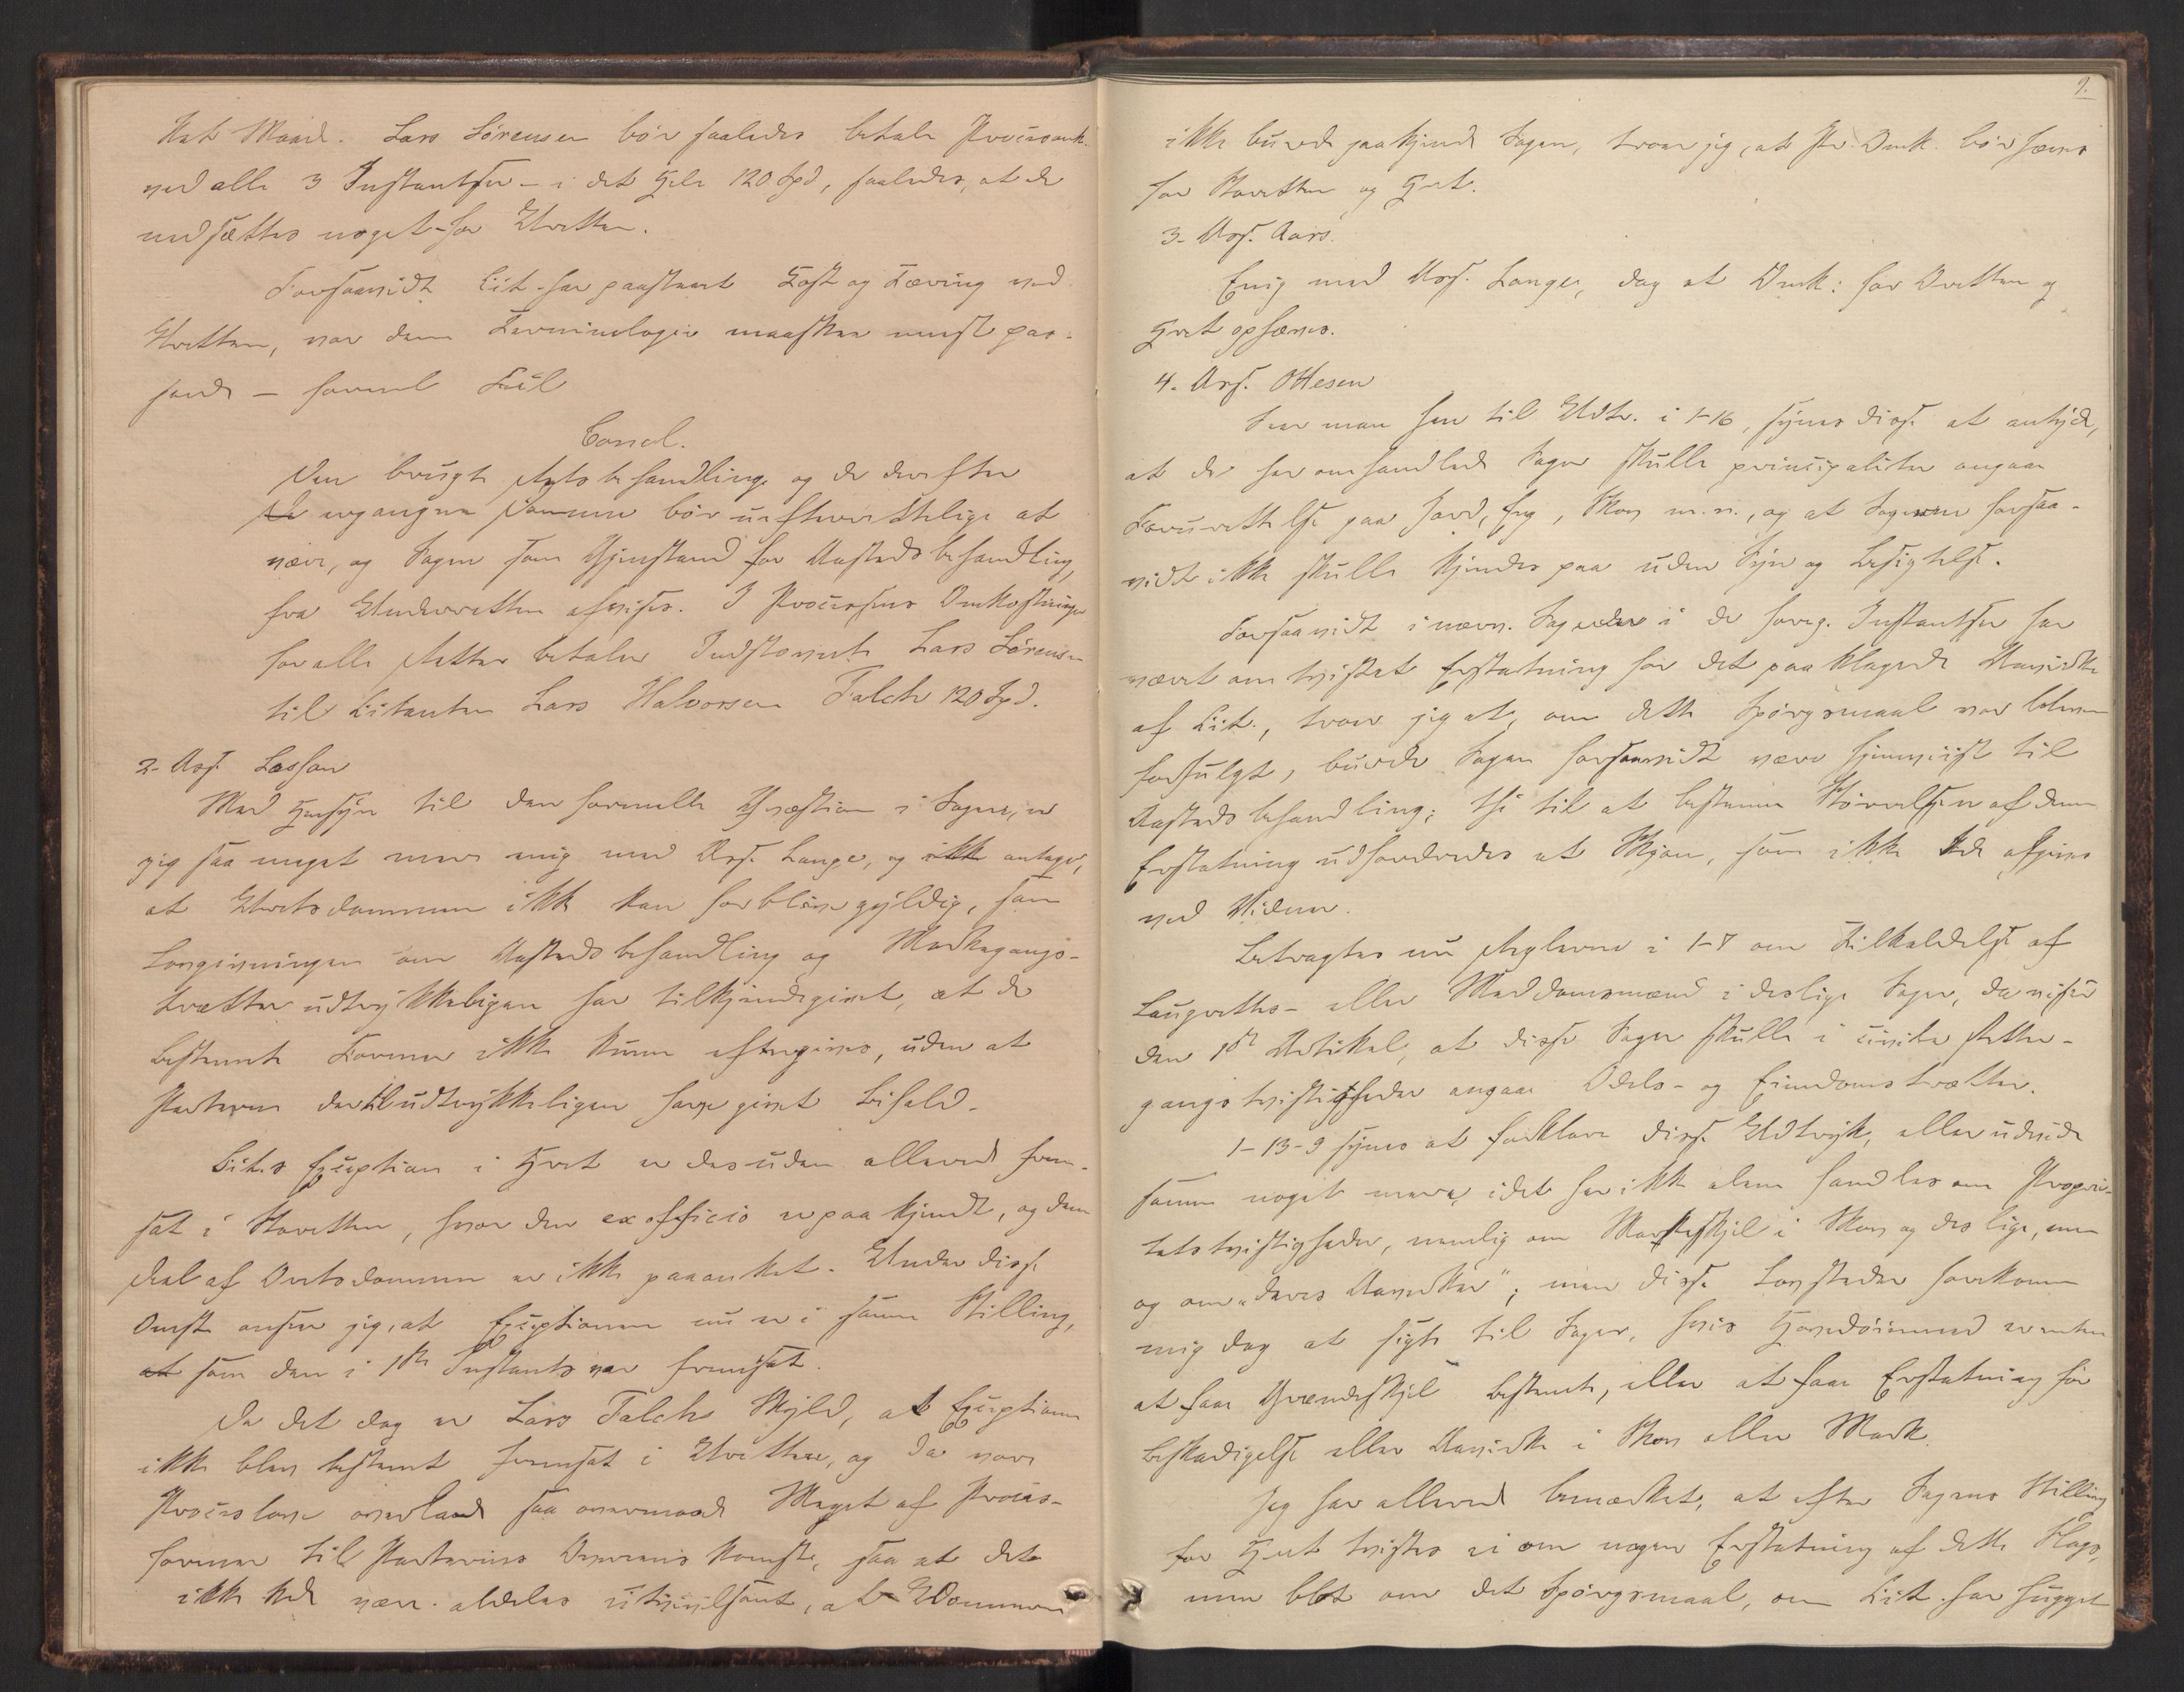 Ret Maade. Lars Sörensen bör saaledes betale Procesomk.
ved alle 3 Instantser - i det Hele 120 Spd, saaledes, at de
nedsættes noget for Uretten.
Forsaavidt Cit. har paastaaet Kost og Tæring ved
Uretten, var denne Terminologie maaskee mest pas-
sende - formel Feil
Concl.
Den brugte Retsbehandling og de derefter
De ergangne Domme bör uefterrettelige at
være, og Sagen som Gjenstand for Aastedsbehandling,
fra Underretten afvises. I Processens Omkostninger
for alle Retter betaler Indstævnte Lars Sörensen
til Citanten Lars Halvorsen Falch 120 Spd.
2. Ass. Lasson
Med Hensyn til den formelle Qvæstion i Sagen, er
jeg saa meget mere enig med Ass. Lange, og ikke antager,
at Uretsdommen ikke kan forblive gyldig, som
Lovgivningen om Aastedsbehandling og Markegangs-
trætter udtrykkeligen har tilkjendegivet, at de
bestemte Former ikke kunne eftergives, uden at
Parterne dertil udtrykkeligen have givet Bifald.
Cit.s Exception i Hret er desuden allerede frem-
sat i Stvretten, hvor den ex officio er paakjendt, og denne
Deel af Ovretsdommen er ikke paaanket. Under disse
Omst. anseer jeg, at Exceptionen nu er i samme Stilling,
at som den i 1ste Instants var fremsat.
Da det dog er Lars Falchs Skyld, at Exceptionen
ikke blev bestemt fremsat i Uretten, og da vore
Proceslove overlade saa overmaade Meget af Proces-
former til Parternes Overenskomst, saa at det
ikke kde være aldeles utvivlsomt, at Udommeren
9.
ikke burde paakjende Sagen, troer jeg, at Pr. Omk. bör hæves
for Stvretten og Hret.
3. Ass. Aars.
Enig med Ass. Lange, dog at Omk: for Ovretten og
Hret ophæves.
4. Ass. Ottesen
Seer man hen til Udtr. i 1-16, synes disse at antyde,
at de her omhandlede Sager skulle principaliter angaae
Forurettelse paa Jord, Eng, Skov m.v., og at Sagerne forsaa-
vidt ikke skulle kjendes paa uden Syn og Besigtelse.
Forsaavidt i nærv. Sag der i de foreg. Instantser har
været omtvistet Erstatning for det paaklagede Uavirke
af Cit., troer jeg at, om dette Spörgsmaal var bleven
forfulgt, burde Sagen forsaavidt være hjemviist til
Aastedsbehandling; thi til at bestemme Störrelsen af denne
Erstatning udfordredes et Skjön, som ikke kde afgives
ved Vidner.
Betragtes nu Reglerne i 1-7 om Tilkaldelse af
Laugrettes- eller Meddomsmænd i deslige Sager, da viser
den 1ste Artikel, at disse Sager skulle i civile Retter-
gangstvistigheder angaae Odels- og Eiendomstrætter.
1-13-9 synes at forklare disse Udtryk, eller udvide
samme noget mere, idet her ikke alene handles om Proprie-
tetstvistigheder, nemlig om Markeskjel i Skov og deslige, men
og om "deres Uavirker"; men disse Lovsteder forekomme
mig dog at sigte til Sager, hvis Hovedöiemed er enten
at faae Grændeskjel bestemt, eller at faae Erstatning for
Beskadigelse eller Uavirke i Skov eller Mark.
Jeg har allerede bemærket, at efter Sagens Stilling
for Hret tvistes ei om nogen Erstatning af dette Slags,
men blot om det Spörgsmaal, om Cit. har hugget